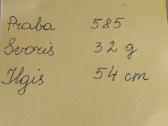 Praba 585
Svoris 32 g
Ilgis 54 cm